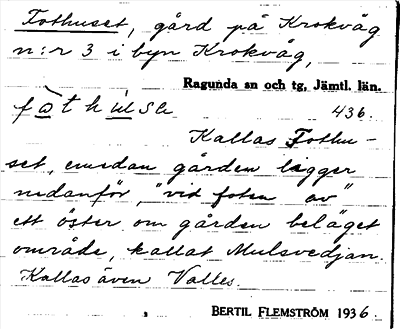 Fothuset, gård på Krokvåg
n:r 3 i byn Krokvåg,
Ragunda sn och tg, Jämtl. län.
fo̱t hu̱se 436.
Kallas Fothu-
set, emedan gården ligger
nedanför, "vid foten av"
ett öster om gården beläget
område, kallat Mulsvedjan.
Kallas även Valles.
BERTIL FLEMSTRÖM 1936.